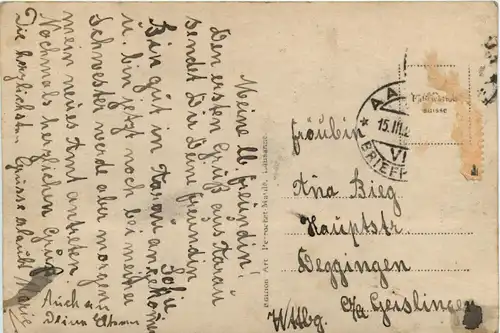 Meine lb. Freundin!
Den ersten Gruß aus Aarau
sendet Dir Deine Freundin
Sofie
Bin gut in Aarau angekommen
u. bin jetzt noch bei meiner
Schwester werde aber morgen
mein neues Amt antreten
Nochmals herzlichen Gruß
Die herzlichsten Grüsse erlaubt Marie
Auch an
Deine Eltern
Edition Art. Perrochet-Matile, Lausanne
AA
15.III.
VI
BRIEF
suisse
Fräulein
Ana Bieg
Hauptstr.
Deggingen
O/a Geislingen
Wttbg.